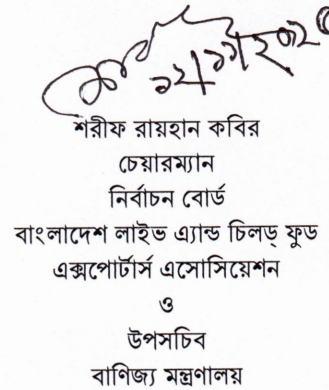 শরীফ রায়হান কবির
চেয়ারম্যান
নির্বাচন বোর্ড
বাংলাদেশ লাইভ এ্যান্ড চিলড্ ফুড
এক্সপোর্টার্স এসোসিয়েশন
ও
উপসচিব
বাণিজ্য মন্ত্রণালয়